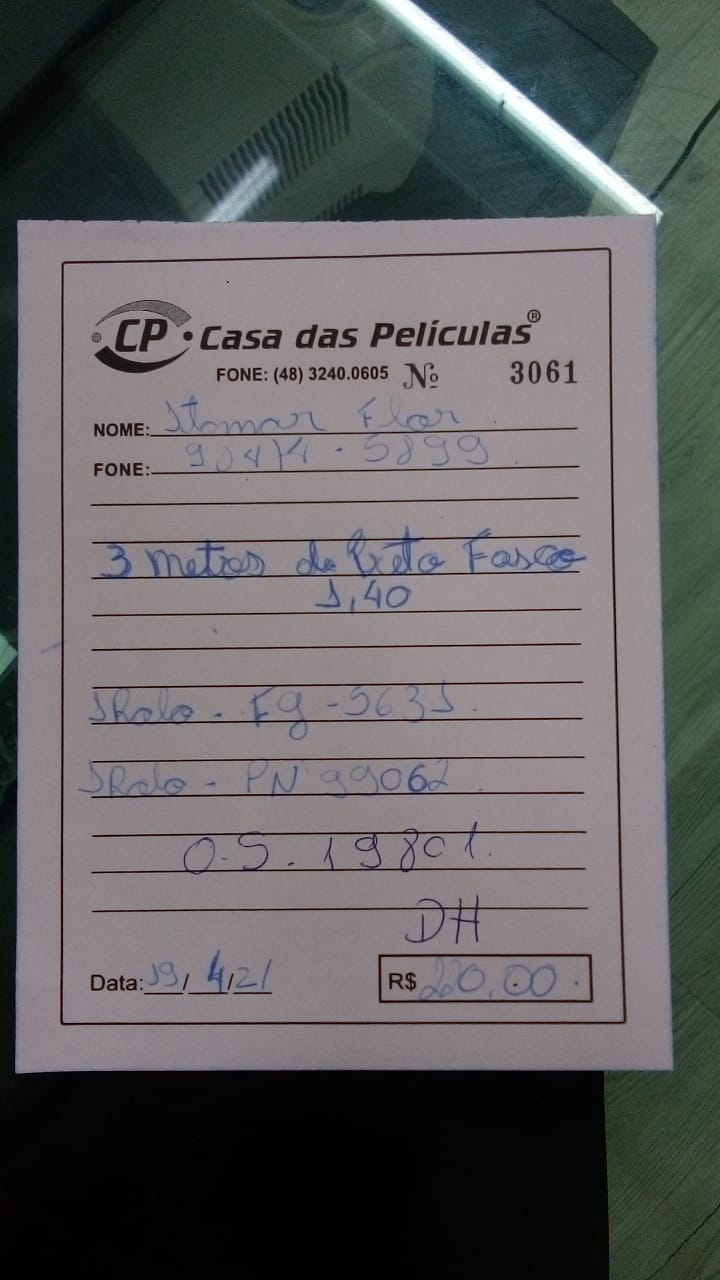 CP • Casa das Películas®
FONE: (48) 3240.0605 Nº 3061
NOME: Itamar Flor
FONE: 98414-5899
3 metros de Preto Fosco
1,40
1 Rolo - Fg - 5631.
1 Rolo - PN 99062.
O.S. 19801.
DH
Data: 19/4/21 R$ 220,00.